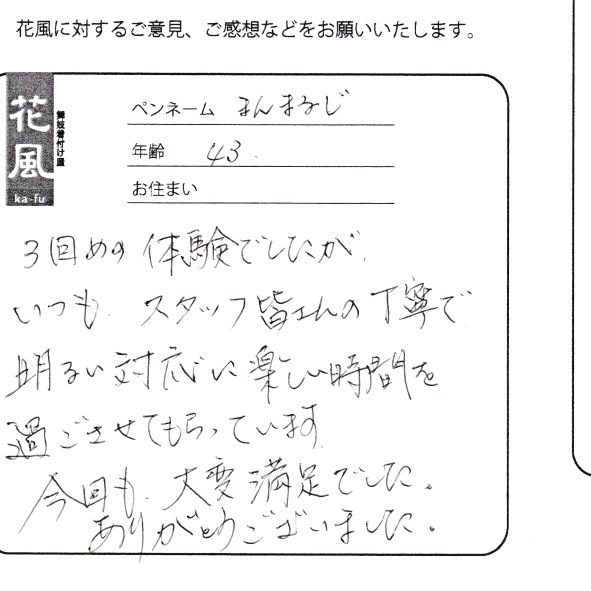 花風に対するご意見、ご感想などをお願いいたします。
花風
舞妓着付け屋
ka-fu
ペンネーム まんまるじ
年齢 43.
お住まい
3回めの体験でしたが、
いつも、スタッフ皆さんの丁寧で
明るい対応に楽しい時間を
過ごさせてもらっています
今回も、大変満足でした。
ありがとうございました。